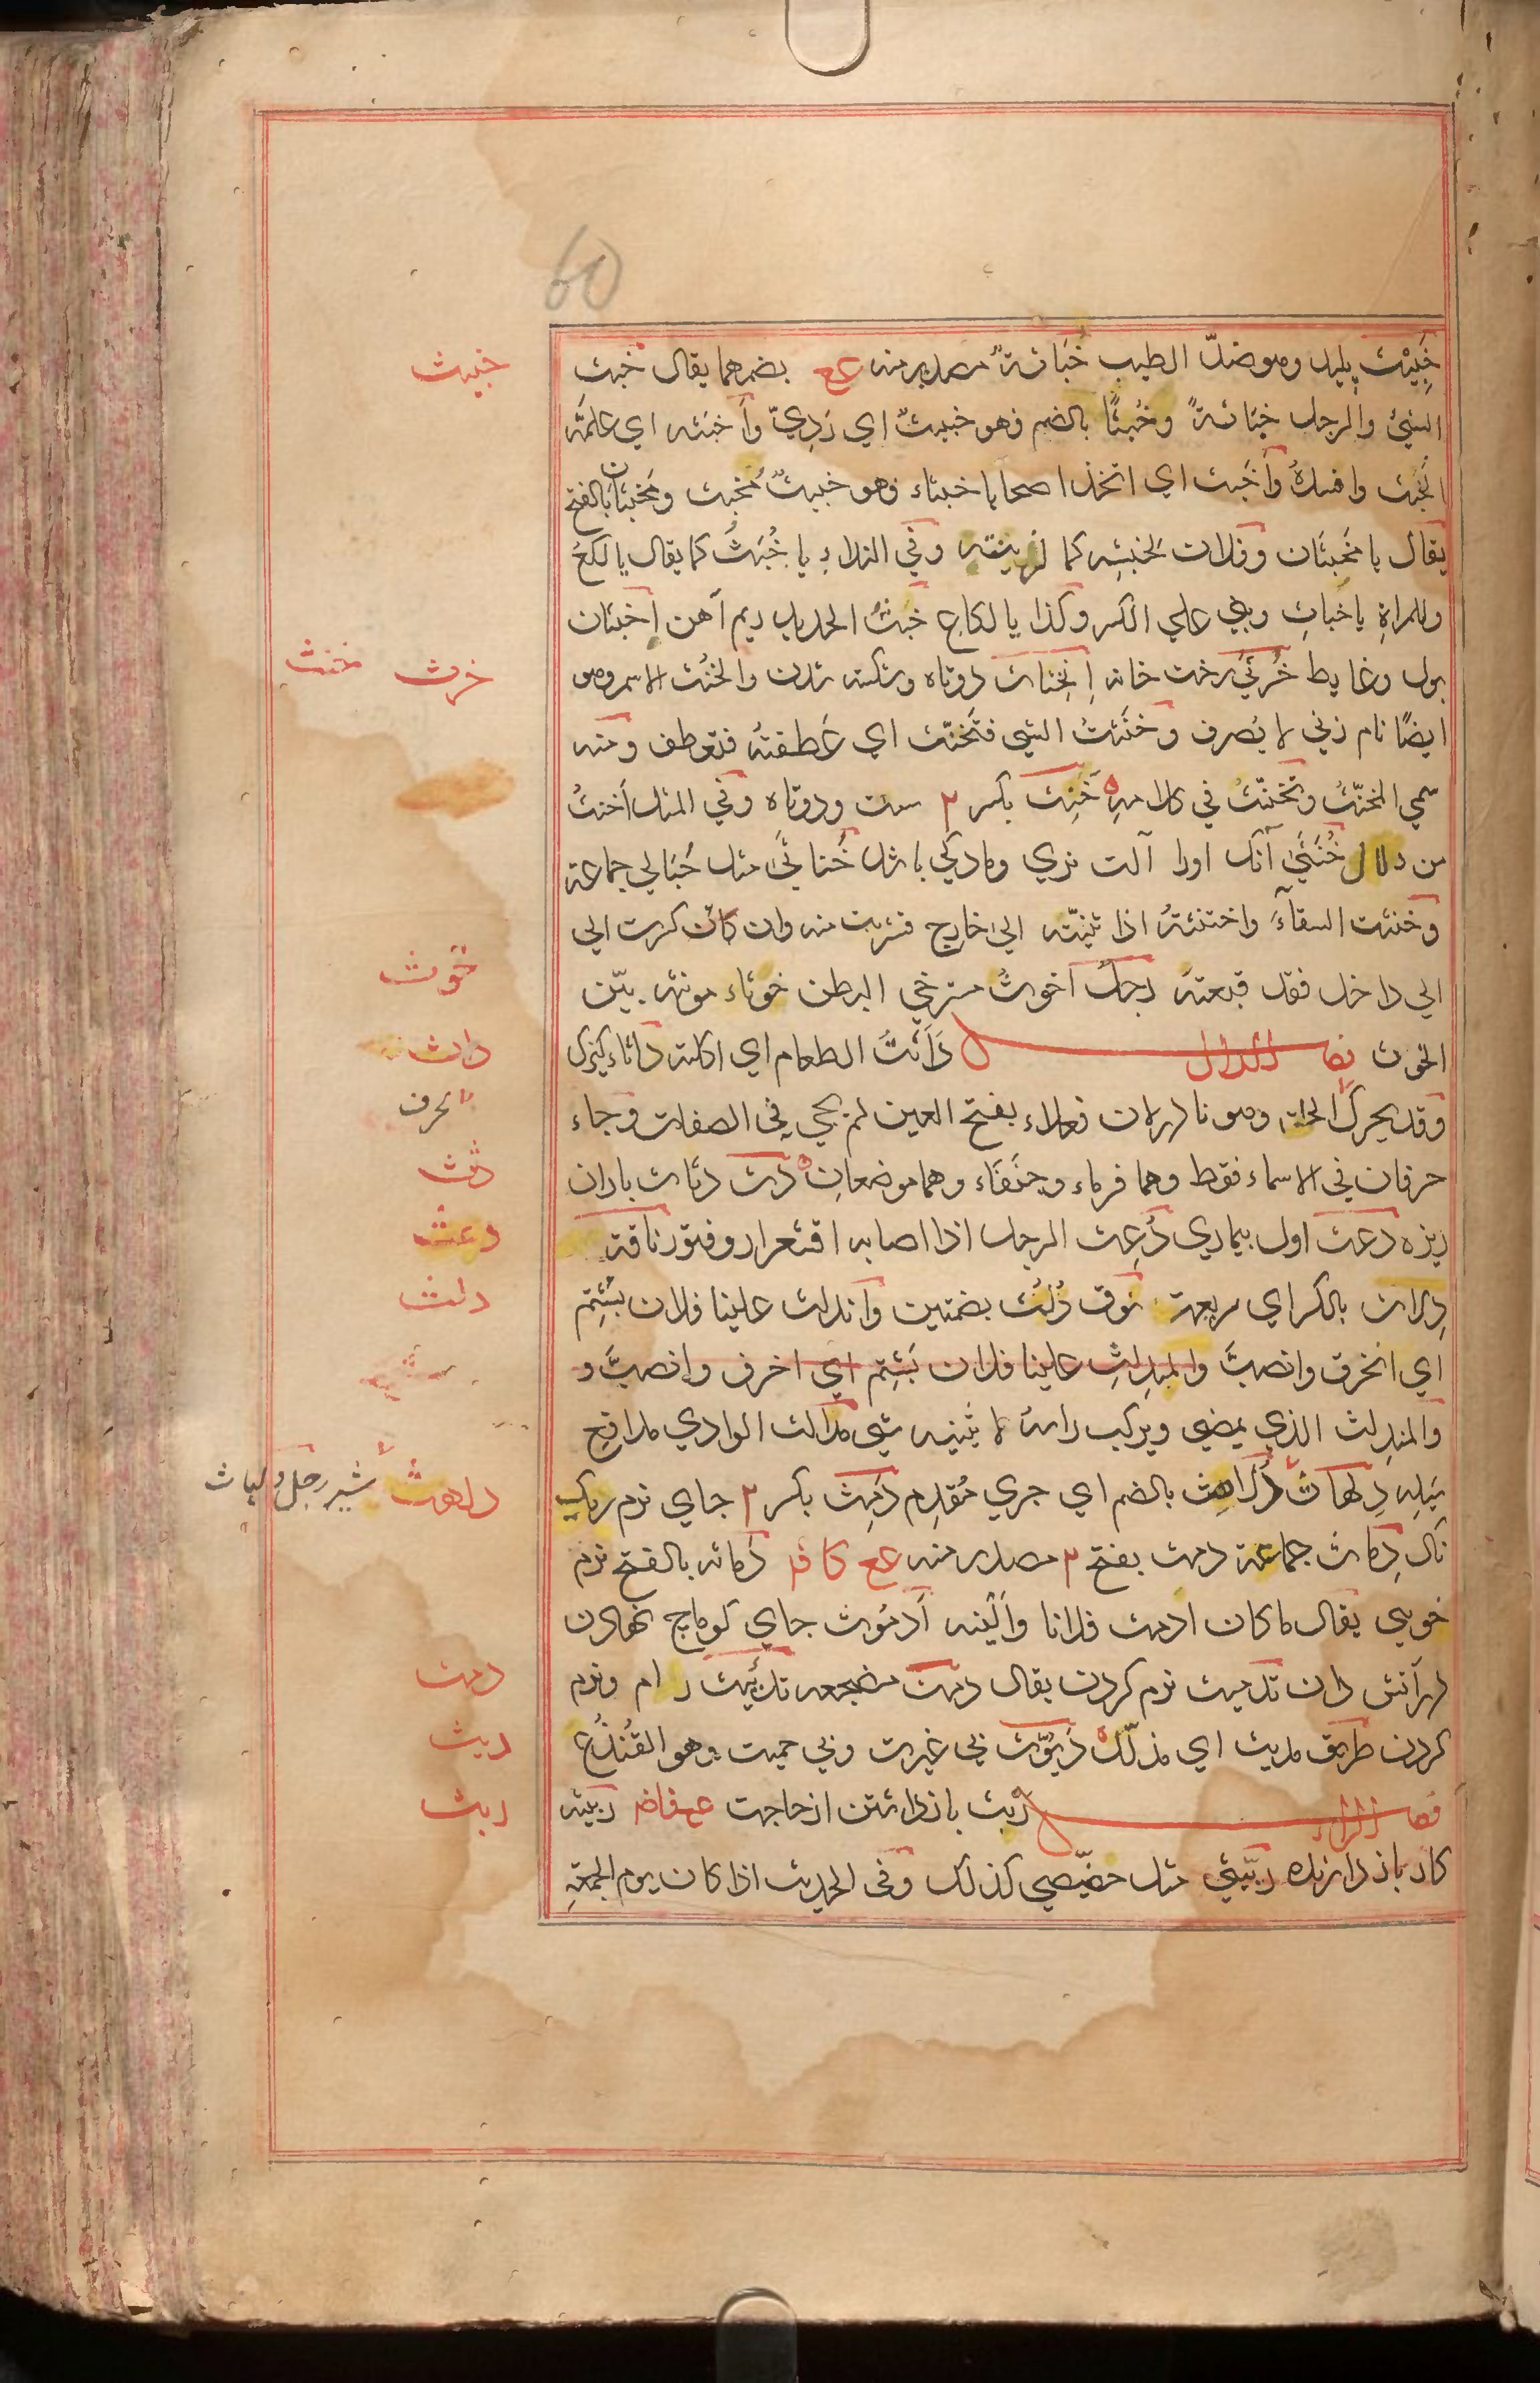 60
خَبِيْث پليد وهو ضدّ الطيب خَبَاثةٌ مصدر منه عع بضمهما يقال خبث
خبيث
الشئ والرجل خبَاثةً وخُبثًا بالضم فهو خبيثٌ اي رَدِيّ وأَخبثه اي علّمَه
الخُبث وافسدهُ وأَخَبث اي اتخذ اصحابا خبثاء فهو خبيثٌ مُخبِث ومَخبثان بالفتح
يقال يا مَخبثَان وفلان لخبثِه كما لزنيته وفي النداءِ يا خُبَثُ كما يقال يا لكعُ
وللمراةِ يا خَباثِ وبني علي الكسر وكذا يا لكاعِ خبَثُ الحديد ريم آهن اَخبثان
بول وغايط خُرثِيّ رخت خانه اِنخِناث دوتاه وشكسته شدن والخنُث الاسم وهو
خرث خنث
ايضًا نام زني لا يُصرف وخنَثتُ الشي فتَخنّث اي عَطفتهُ فتعطف ومنه
سمي المخنّث وتخنّثُ في كلامهِ خَنِث بكسر ٢ سست ودوتاه وفي المثل اَخنثُ
من دلال خُنثَي آنك اورا آلت نري ومادكي باشد خَناثَي مثل حَبَالي جماعة
وخنثت السقاءَ واختنثتهُ اذا ثنيتّه الي خارج فشربت منه وان كان كسرت الي
الي داخل فقد قبعته رجلٌ اَخوثُ مسترخي البطن خوثاء مونثه بيّن
خوث
الخوث فصل الدال دَأَثتُ الطعام اي اكلته دأثاء كنيزك
داث
وقد يحرك الحلق وهو نادر لان فعلاء بفتح العين لم يجي في الصفات وجاء
حرف
حرفان في الاسماء فقط وهما فرماء وجنَفَاء وهما موضعانِ دَث دثاث باران
دثث
ريزه دعث اول بيماري دُعِث الرجل اذا اصابه اقشعرار وفتور ناقة
دعث
دِلاث بالكسر اي سريعة نوق دُلُث بضمتين وانَدلث علينا فلان بشتِم
دلث
اي انخرق وانصبَّ والمندلِث علينا فلان بَشتِم اي اخرق وانصبَّ و
والمندِلث الذي يمضي ويركب راسهُ لا يثنيه شي مدالث الوادي مدافع
سَيلِه دِلهاث دُلاهث بالضم اي جري مُقدِم دَمِث بكسر ٢ جاي نرم ريك
دلهث شير رجل دلهاث
نَاك دِماث جماعة دمث بفتح ٢ مصدر منه عع دَماثه بالفتح نرم
خويي يقال ما كان ادمث فلانا وأَلينه اَدمُوث جاي كوماج نهادن
در آتش دان تدميث نرم كردن يقال دمث مضجعه تديُيث رام ونرم
دمث
كردن طريق مديث اي مذلّل دَيُوّث بي غيرت وبي حميت وهو القُنذُع
ديث
فصل الراء رَبث باز داشتن از حاجت ربيثه
ربث
كار باز دارنده ربّيثي مثل خصّيصي كذلك وفي الحديث اذا كان يوم الجمعةِ